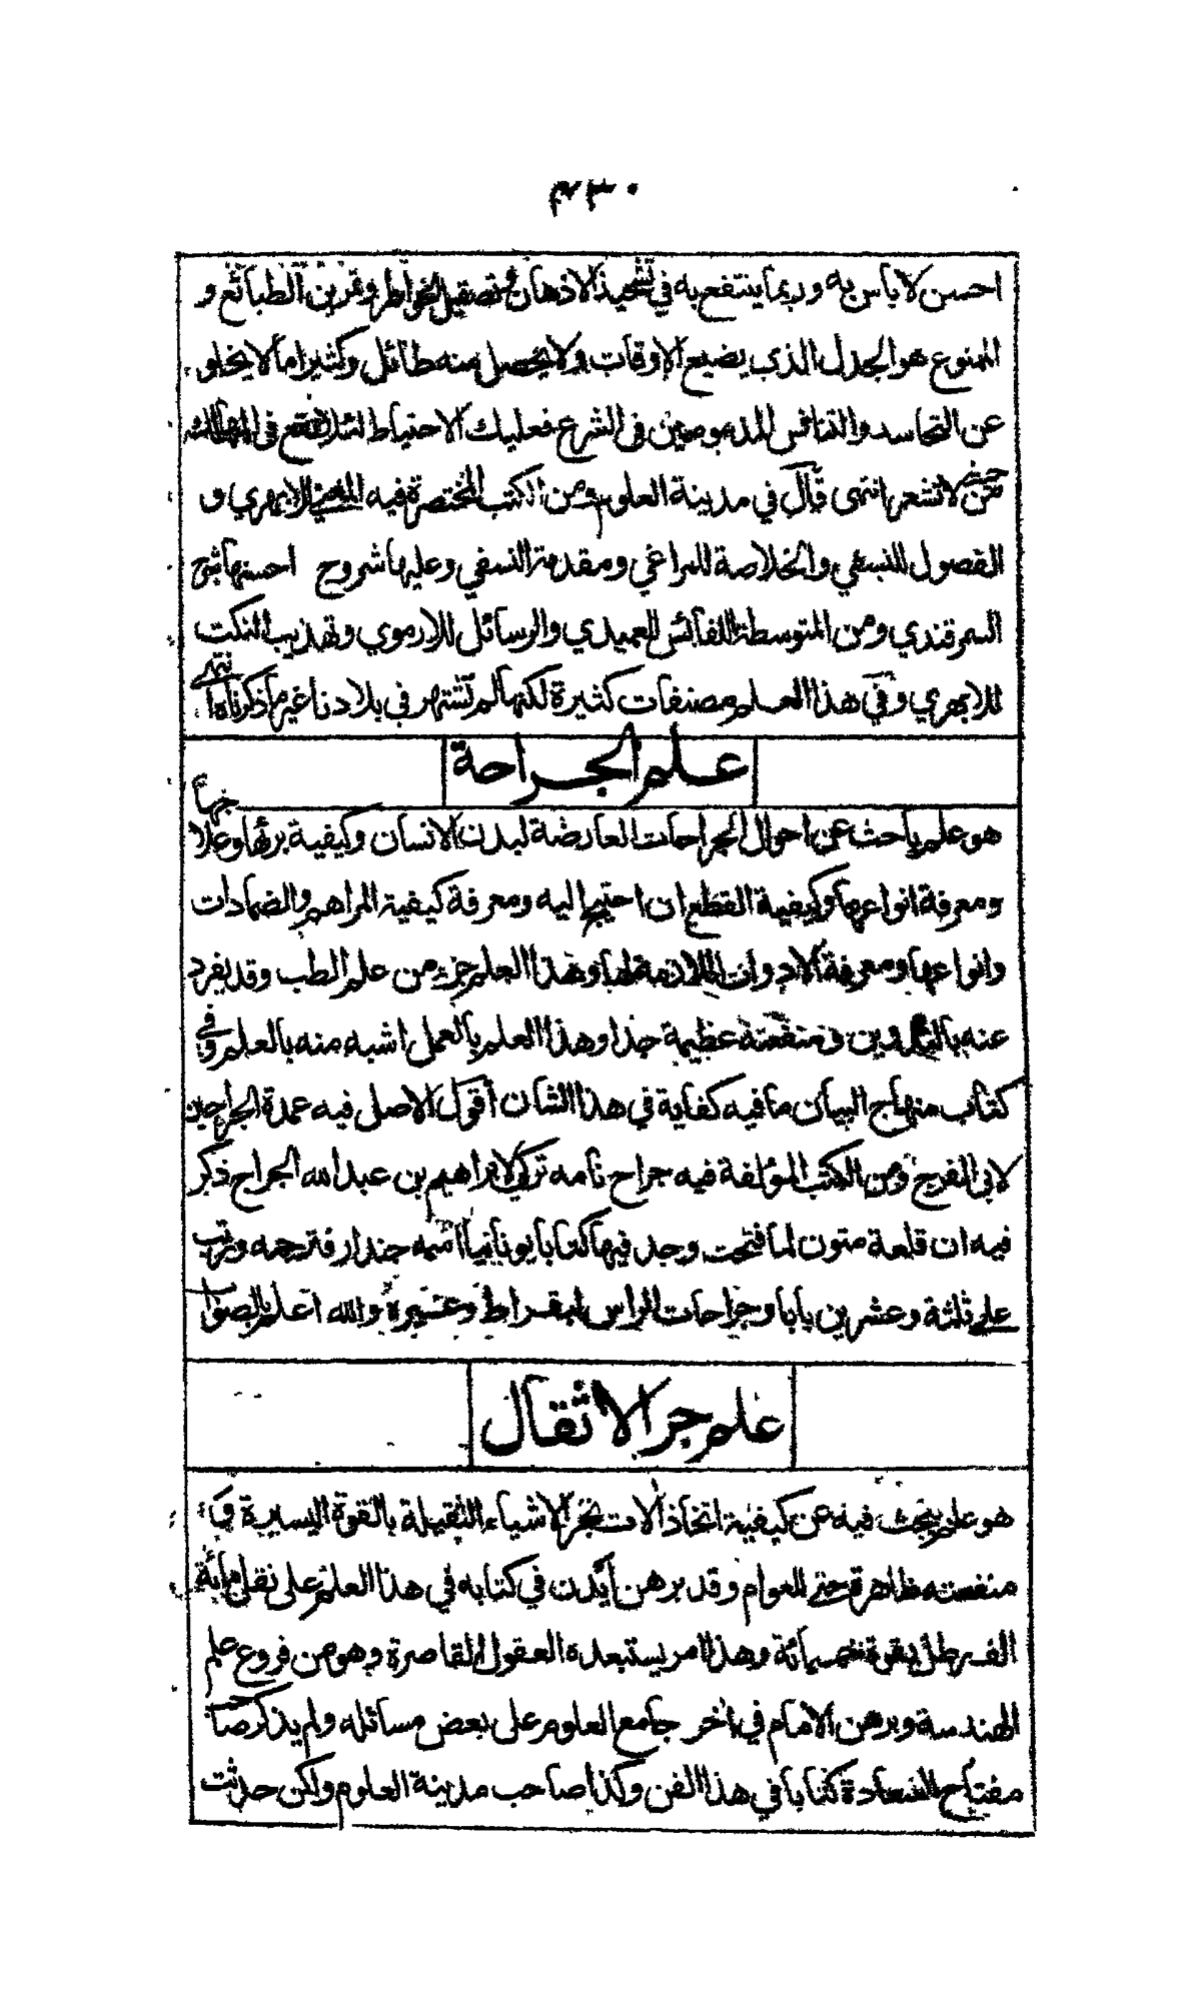 ٤٣٠
احسن لا باس به وربما ينتفع به في تشحيذ الاذهان وتصقيل الخواطر وتمرين الطبائع و
الممنوع هو الجدل الذي يضيع الاوقات ولا يحصل منه طائل وكثيرا ما لا يخلو
عن التحاسد والتنافس المذمومين في الشرع فعليك الاحتياط لئلا تقع في المهالك
من حيث لا تشعر انتهى قال في مدينة العلوم ومن الكتب المختصرة فيه المغني للابهري و
الفصول للنسفي والخلاصة للمراغي ومقدمة النسفي وعليها شروح احسنها شرح
السمرقندي ومن المتوسطة النفائس للعميدي والرسائل للارموي وتهذيب النكت
للابهري وفي هذا العلم مصنفات كثيرة لكنها لم تشتهر في بلادنا غير ما ذكرناه انتهى
علم الجراحة
هو علم باحث عن احوال الجراحات العارضة لبدن الانسان وكيفية برئها وعلاجها
ومعرفة انواعها وكيفية القطع ان احتيج اليه ومعرفة كيفية المراهم والضمادات
وانواعها ومعرفة الادوات اللازمة لها وهذا العلم جزء من علم الطب وقد يفرد
عنه بالتدوين ومنفعته عظيمة جدا وهذا العلم بالعمل اشبه منه بالعلم وفي
كتاب منهاج البيان ما فيه كفاية في هذا الشان أقول الاصل فيه عمدة الجراحين
لابي الفرج ومن الكتب المؤلفة فيه جراح نامه تركي لابراهيم بن عبد الله الجراح ذكر
فيه ان قلعة متون لما فتحت وجد فيها كتابا يونانيا اسمه جندار فترجمه ورتب
على ثلثة وعشرين بابا وجراحات الراس لبقراط وغيره والله اعلم بالصواب
علم جر الاثقال
هو علم يبحث فيه عن كيفية اتخاذ آلات تجر الاشياء الثقيلة بالقوة اليسيرة و
منفعته ظاهرة حتى للعوام وقد برهن آيدن في كتابه في هذا العلم على نقل مائة
الف رطل بقوة خمسمائة وهذا امر يستبعده العقول القاصرة وهو من فروع علم
الهندسة وبرهن الامام في آخر جامع العلوم على بعض مسائله ولم يذكر صاحب
مفتاح السعادة كتابا في هذا الفن وكذا صاحب مدينة العلوم ولكن حدثت